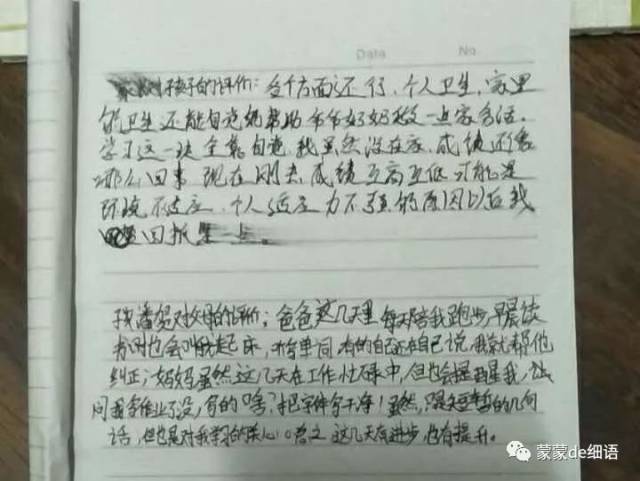 Data No
家长对孩子的评价：各个方面还行，个人卫生，家里
的卫生还能自觉地帮助爷爷奶奶做一点家务活。
学习这一块全靠自觉，我虽然没在家，成绩还像
那么回事，现在刚去，成绩忽高忽低，可能是
环境不适应，个人适应力不强的原因以后我
回报 一点。
我潘贺对父母的评价：爸爸这几天里每天陪我跑步，早晨读
书时也会叫我起床，听写单词，有的自己还在自己说，我就帮他
纠正；妈妈虽然这几天在工作忙碌中，但也会提醒我，
问我作业了没，写的啥？把字体写干净！虽然，只是短暂的几句
话，但也是对我学习的关心！总之，这几天有进步，也有提升。
蒙蒙de细语